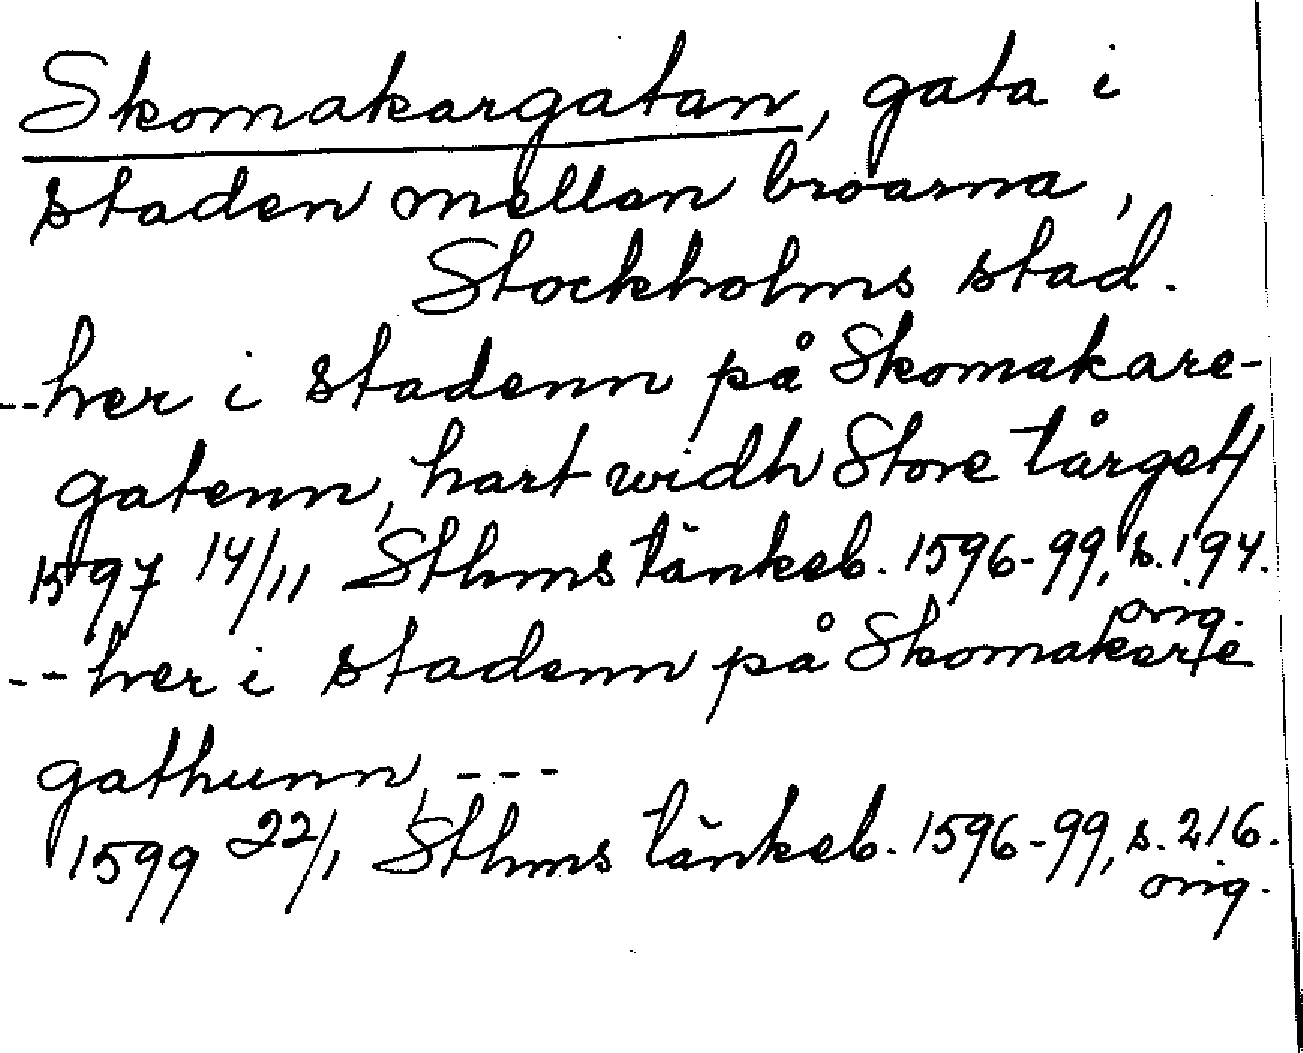 Skomakargatan, gata i
staden mellan broarna,
Stockholms stad.
--her i stadenn på Skomakare-
gatenn, hart widh Store tårgett
1597 14/11 Sthms tänkeb. 1596-99, s. 194.
orig.
--her i stadenn på Skomakerte
gathunn, ---
1599 22/1 Sthms tänkeb. 1596-99, s. 216.
orig.